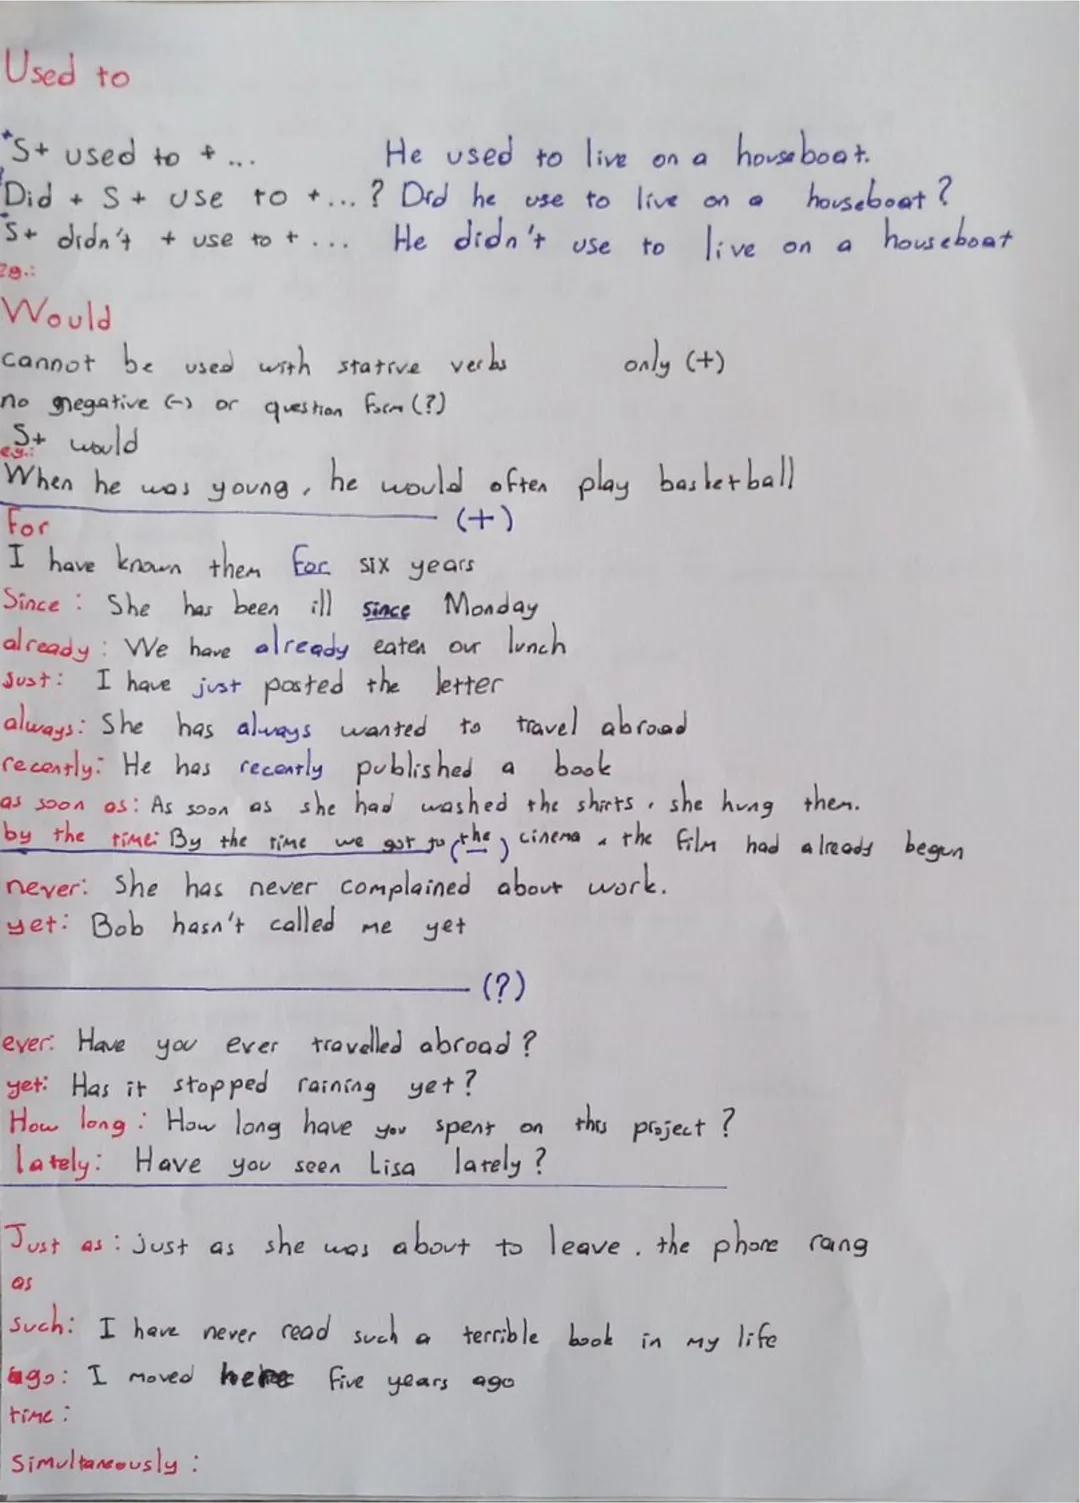 Used to
*S+ used to + ... He used to live on a houseboat.
Did + S + use to +...? Did he use to live on a houseboat?
S+ didn't + use to + ... He didn't use to live on a houseboat
eg.:
Would
cannot be used with stative verbs only (+)
no negative (-) or question form (?)
S+ would
eg.:
When he was young, he would often play basketball
(+)
for
I have known them for six years
Since: She has been ill since Monday
already: We have already eaten our lunch
Just: I have just posted the letter
always: She has always wanted to travel abroad
recently: He has recently published a book
as soon as: As soon as she had washed the shirts, she hung them.
by the time: By the time we got to (the) cinema, the film had already begun
never: She has never complained about work.
yet: Bob hasn't called me yet
(?)
ever: Have you ever travelled abroad?
yet: Has it stopped raining yet?
How long: How long have you spent on this project?
lately: Have you seen Lisa lately?
Just as: just as she was about to leave, the phone rang
as
such: I have never read such a terrible book in my life
ago: I moved here five years ago
time:
Simultaneously: